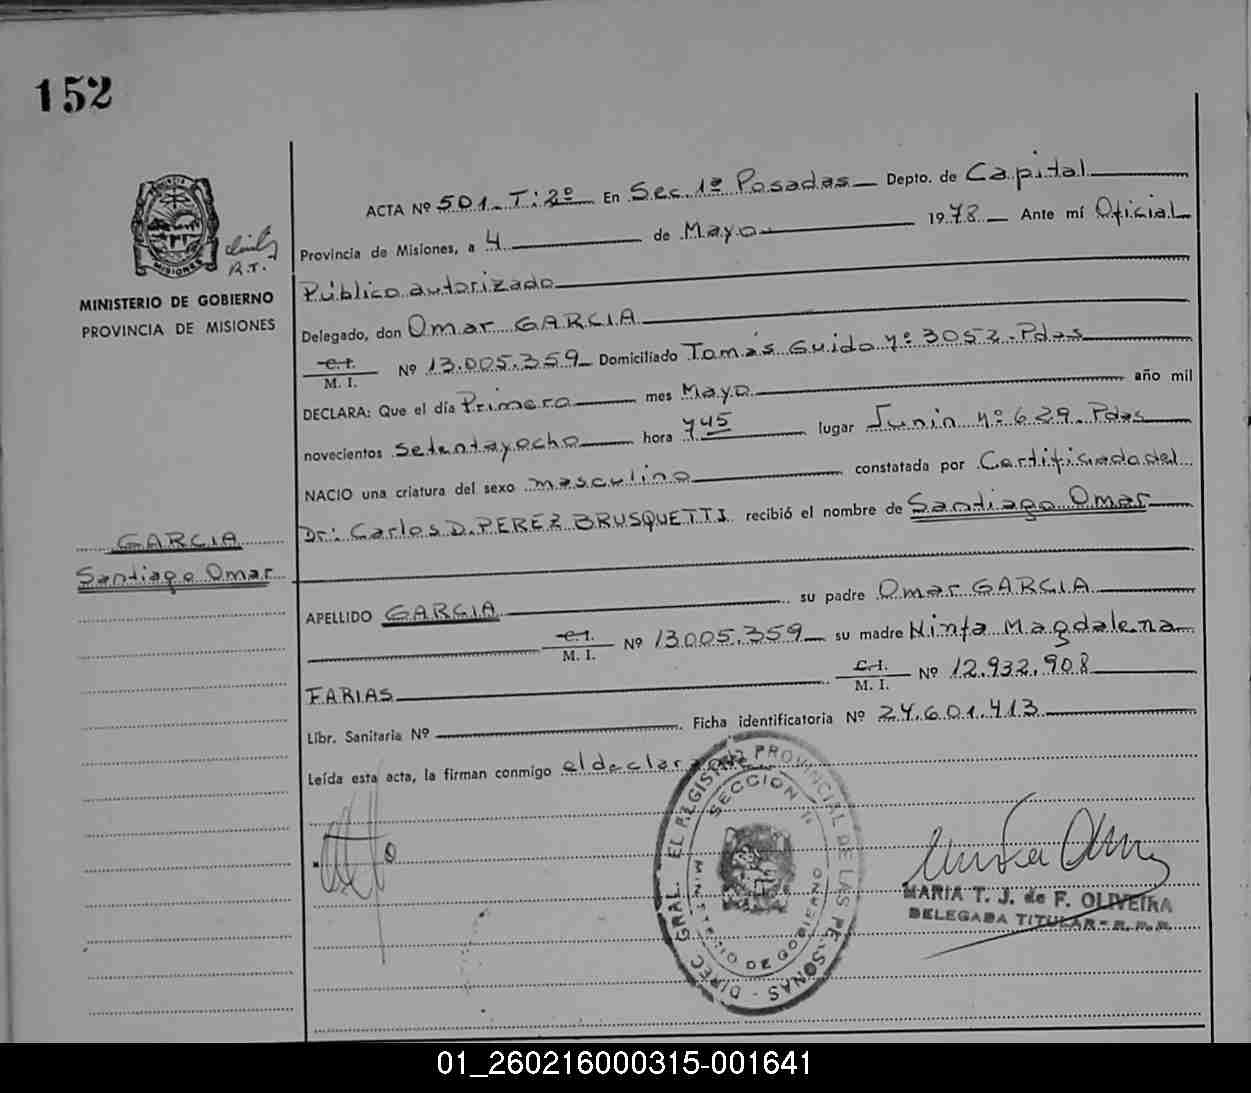 152
ACTA Nº 501. T: 2º En Sec. 1º Posadas Depto. de Capital
Provincia de Misiones, a 4 de Mayo 1978 Ante mí Oficial
R.T.
Público autorizado
MINISTERIO DE GOBIERNO
PROVINCIA DE MISIONES
Delegado, don Omar GARCIA
C.I.
M. I. Nº 13.005.359 Domiciliado Tomás Guido Nº 3052. Pdas
DECLARA: Que el día Primero mes Mayo año mil
novecientos setentayocho hora 7 45 lugar Junin Nº 629. Pdas
NACIO una criatura del sexo masculino constatada por Certificado del
Dr: Carlos D. PEREZ BRUSQUETTI recibió el nombre de Santiago Omar
GARCIA
Santiago Omar
APELLIDO GARCIA su padre Omar GARCIA
C.I.
M. I. Nº 13005.359 su madre Ninfa Magdalena
FARIAS C.I.
M. I. Nº 12.932.908
Libr. Sanitaria Nº Ficha identificatoria Nº 24.601.413
Leída esta acta, la firman conmigo el declarante
DIREC. GRAL. EL REGISTRO PROVINCIAL DE LAS PERSONAS
SECCION 1
MINISTERIO DE GOBIERNO
MARIA T. J. de F. OLIVEIRA
DELEGADA TITULAR - R.P.P.
01_260216000315-001641